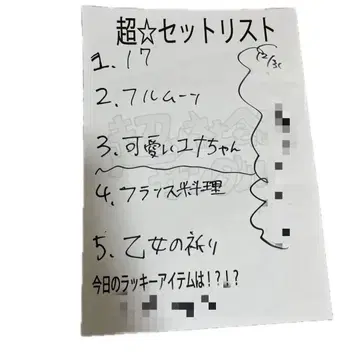 超☆セットリスト
12/31
1. 17
2. フルムーン
3. 可愛いユナちゃん
4. フランス料理
5. 乙女の祈り
今日のラッキーアイテムは!?!?